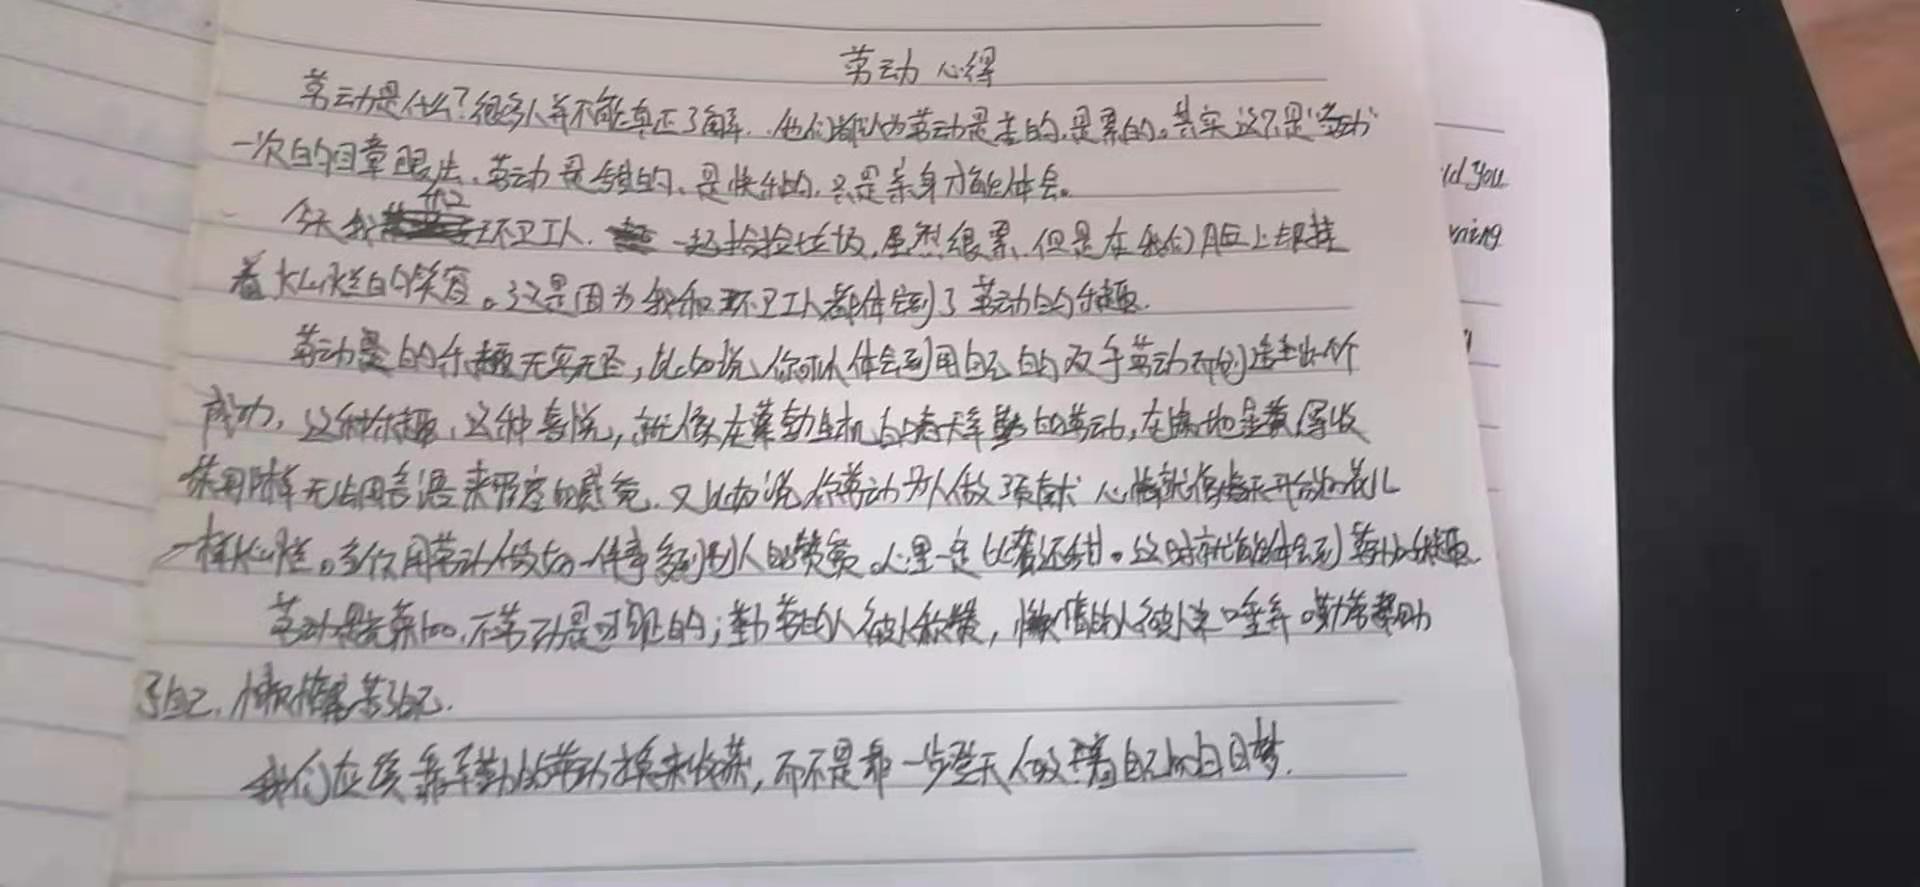 劳动心得
劳动是什么?很多人并不能真正了解.他们都认为劳动是苦的.是累的。其实这只是"劳动"
一次的障眼法、劳动是的、是快乐的,只是亲身才能体会。
今天我和环卫工人.一起捡拾垃圾,虽然很累.但是在我们脸上却挂
着灿烂的笑容。这是因为我和环卫工人都体会到了劳动的乐趣.
劳动的乐趣无穷无尽,比如说、你可以体会到用自己的双手劳动而创造出的
成功,这种乐趣、这种喜悦,就像在春天辛勤的劳动,在金黄
无法用言语来形容的感觉.又比如说你劳动为人做了贡献 心情就像春天开放的花儿
一样灿烂。当你用劳动做好一件事受到别人的赞赏.心里一定比蜜还甜。这时就能体会到劳动的乐趣.
劳动是光荣的,不劳动是可耻的;勤劳的人被人称赞,懒惰的人被人唾弃.勤劳帮助
了自己.懒惰害苦了自己.
我们应该靠辛勤的劳动换来收获,而不是靠一步登天做着自己的白日梦.
ld you
rning